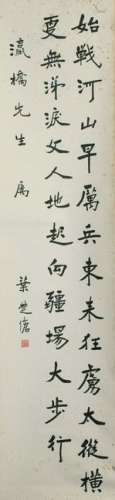 始戰河山早厲兵東未狂虜太從橫
更無涕淚丈人地起向疆場大步行
瀛橋先生屬
葉楚傖